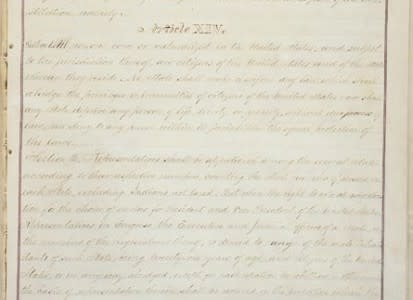 stitution
Article XIV.
Section 1. All persons born or naturalized in the United States, and subject
to the jurisdiction thereof, are citizens of the United States and of the State
wherein they reside. No State shall make or enforce any law which shall
abridge the privileges or immunities of citizens of the United States; nor shall
any State deprive any person of life, liberty, or property, without due process of
law; nor deny to any person within its jurisdiction the equal protection of
the laws.
Section Representatives shall be apportioned among the several States
according to their respective numbers, counting the whole number of persons in
each State, excluding Indians not taxed. But when the right to vote at any election
for the choice of electors for President and Vice President of the United States,
Representatives in Congress, the Executive and Judicial officers of a State, or
the members of the Legislature thereof, is denied to any of the male inhabi-
tants of such State, being twenty-one years of age, and citizens of the United
States, or in any way abridged, except for participation in
the basis of representation therein shall be reduced in the proportion which the